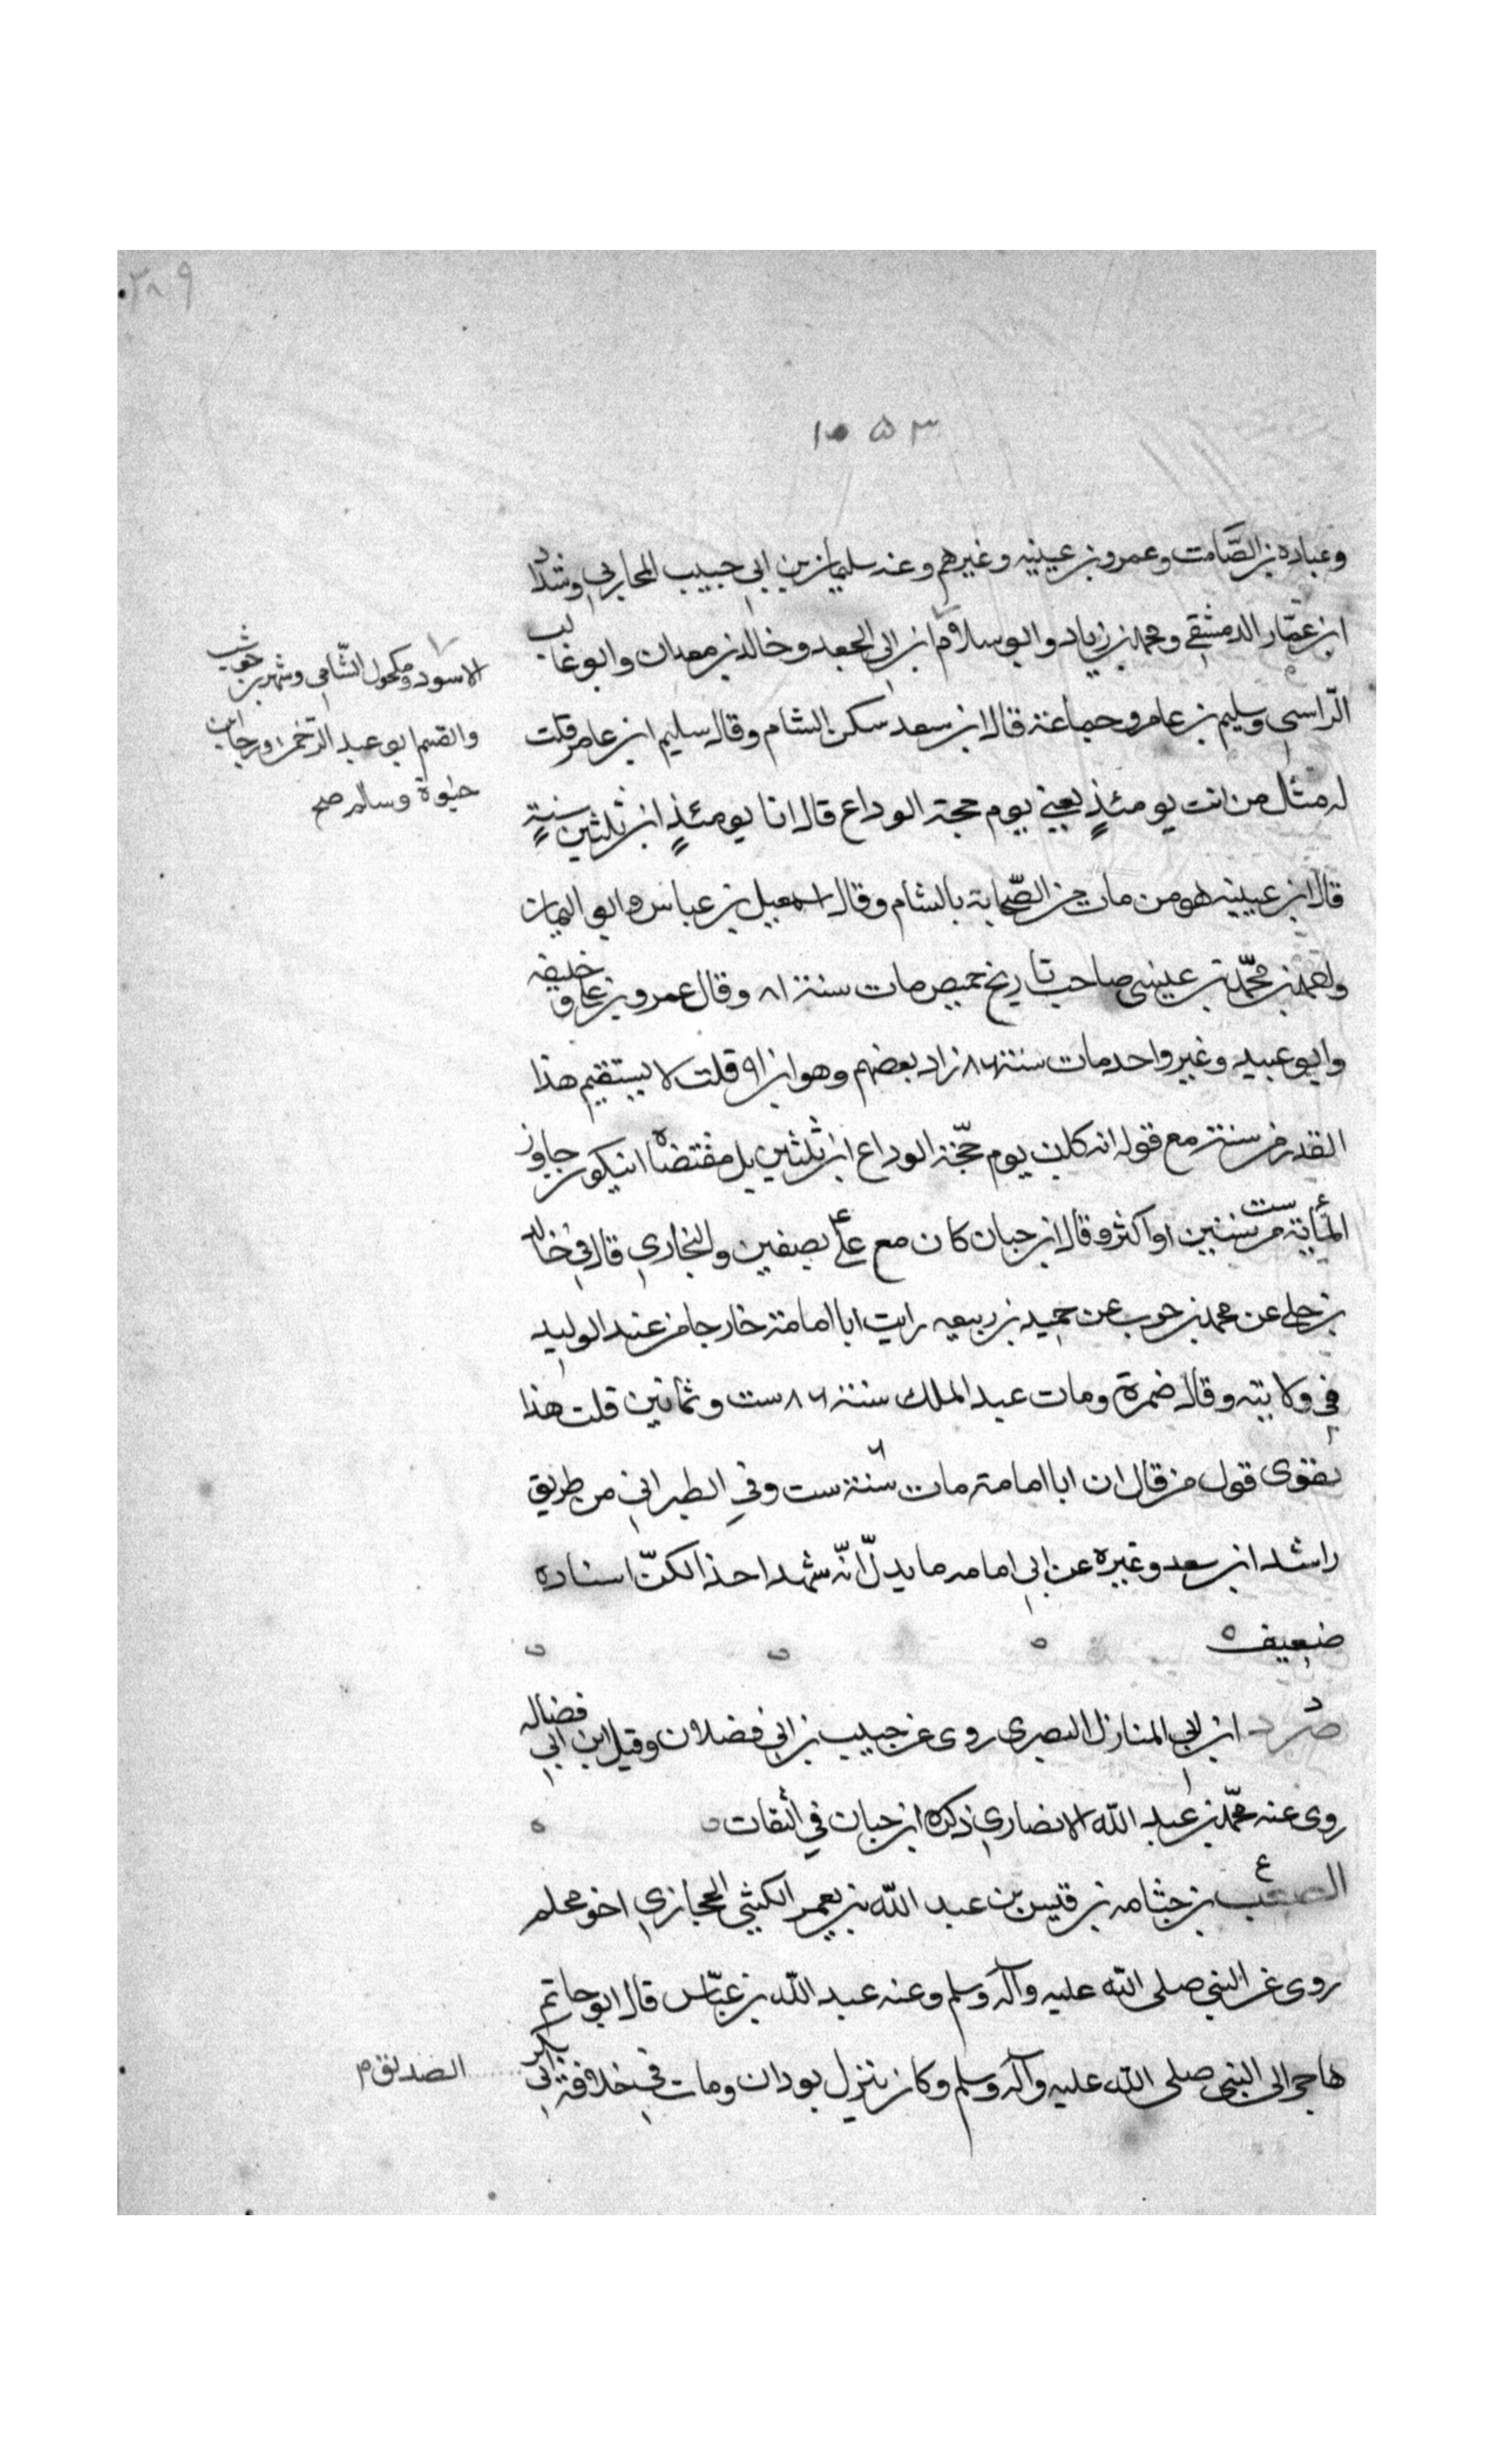 ٢٠٩
١٠٥٣
وعباده بن الصَّامت وعمرو بن عيينه وغيرهم وعنه سليمان بن ابي حبيب المحاربي وشدّاد
ابن عمّار الدمشقي ومحمد بن زياد وابو سلام ابن ابي الجعد وخالد بن معدان وابو غالب
الاسود ومكحول الشّامي وشهر بن حوشب
الرّاسبي وسليم بن عامر وجماعة قال ابن سعد سكن الشام وقال سليم ابن عامر قلت
والقسم ابو عبد الرّحمن ورجا بن
له مثل من انت يومئذٍ يعني يوم حجة الوداع قال انا يومئذٍ ابن ثلثين سنةٍ
حيوة وسالم صح
قال ابن عيينه هو من مات من الصّحابة بالشام وقال اسمعيل بن عباس وابو اليمان
واحمد بن محمّد بن عيسى صاحب تاريخ حميص مات سنة ٨١ وقال عمرو بن علي و خليفه
وابو عبيد وغير واحد مات سنة ٨٦ زاد بعضهم وهو ابن ٩١ قلت لا يستقيم هذا
القدر من سنة مع قوله انه كان يوم حجّة الوداع ابن ثلثين بل مقتضاه ان يكون جاوز
المأية ست سنين او اكثر وقال ابن حبان كان مع علي ع بصفين والبخاري قال في خالد
بن خلي عن محمد بن حرب عن حميد بن ربيعه رايت ابا امامة خارجا من عند الوليد
في ولايته وقال ضمرة ومات عبد الملك سنة ٨٦ ست وثمانين قلت هذا
يقوى قول من قال ان ابا امامة مات سنة ست وفي الطبراني من طريق
راشد ابن سعد وغيره عن ابي امامه ما يدلّ انّه شهد احدا لكنّ اسناده
ضعيف
صُرد ابن ابي المنازل البصري روى عن حبيب بن ابي فضلان وقيل ابن ابي فضاله
روى عنه محمّد بن عبد الله الانصاري ذكره ابن حبان في الثقات
الصعب ع بن جثامه بن قيس بن عبد الله بن يعمر الكيثي الحجازي اخو محلم
روى عن النبي صلى الله عليه وآله وسلم وعنه عبد الله بن عبّاس قال ابو حاتم
هاجر الى النبي صلى الله عليه وآله وسلم وكان ينزل بودان ومات في خلافة ابي بكر
الصديق م